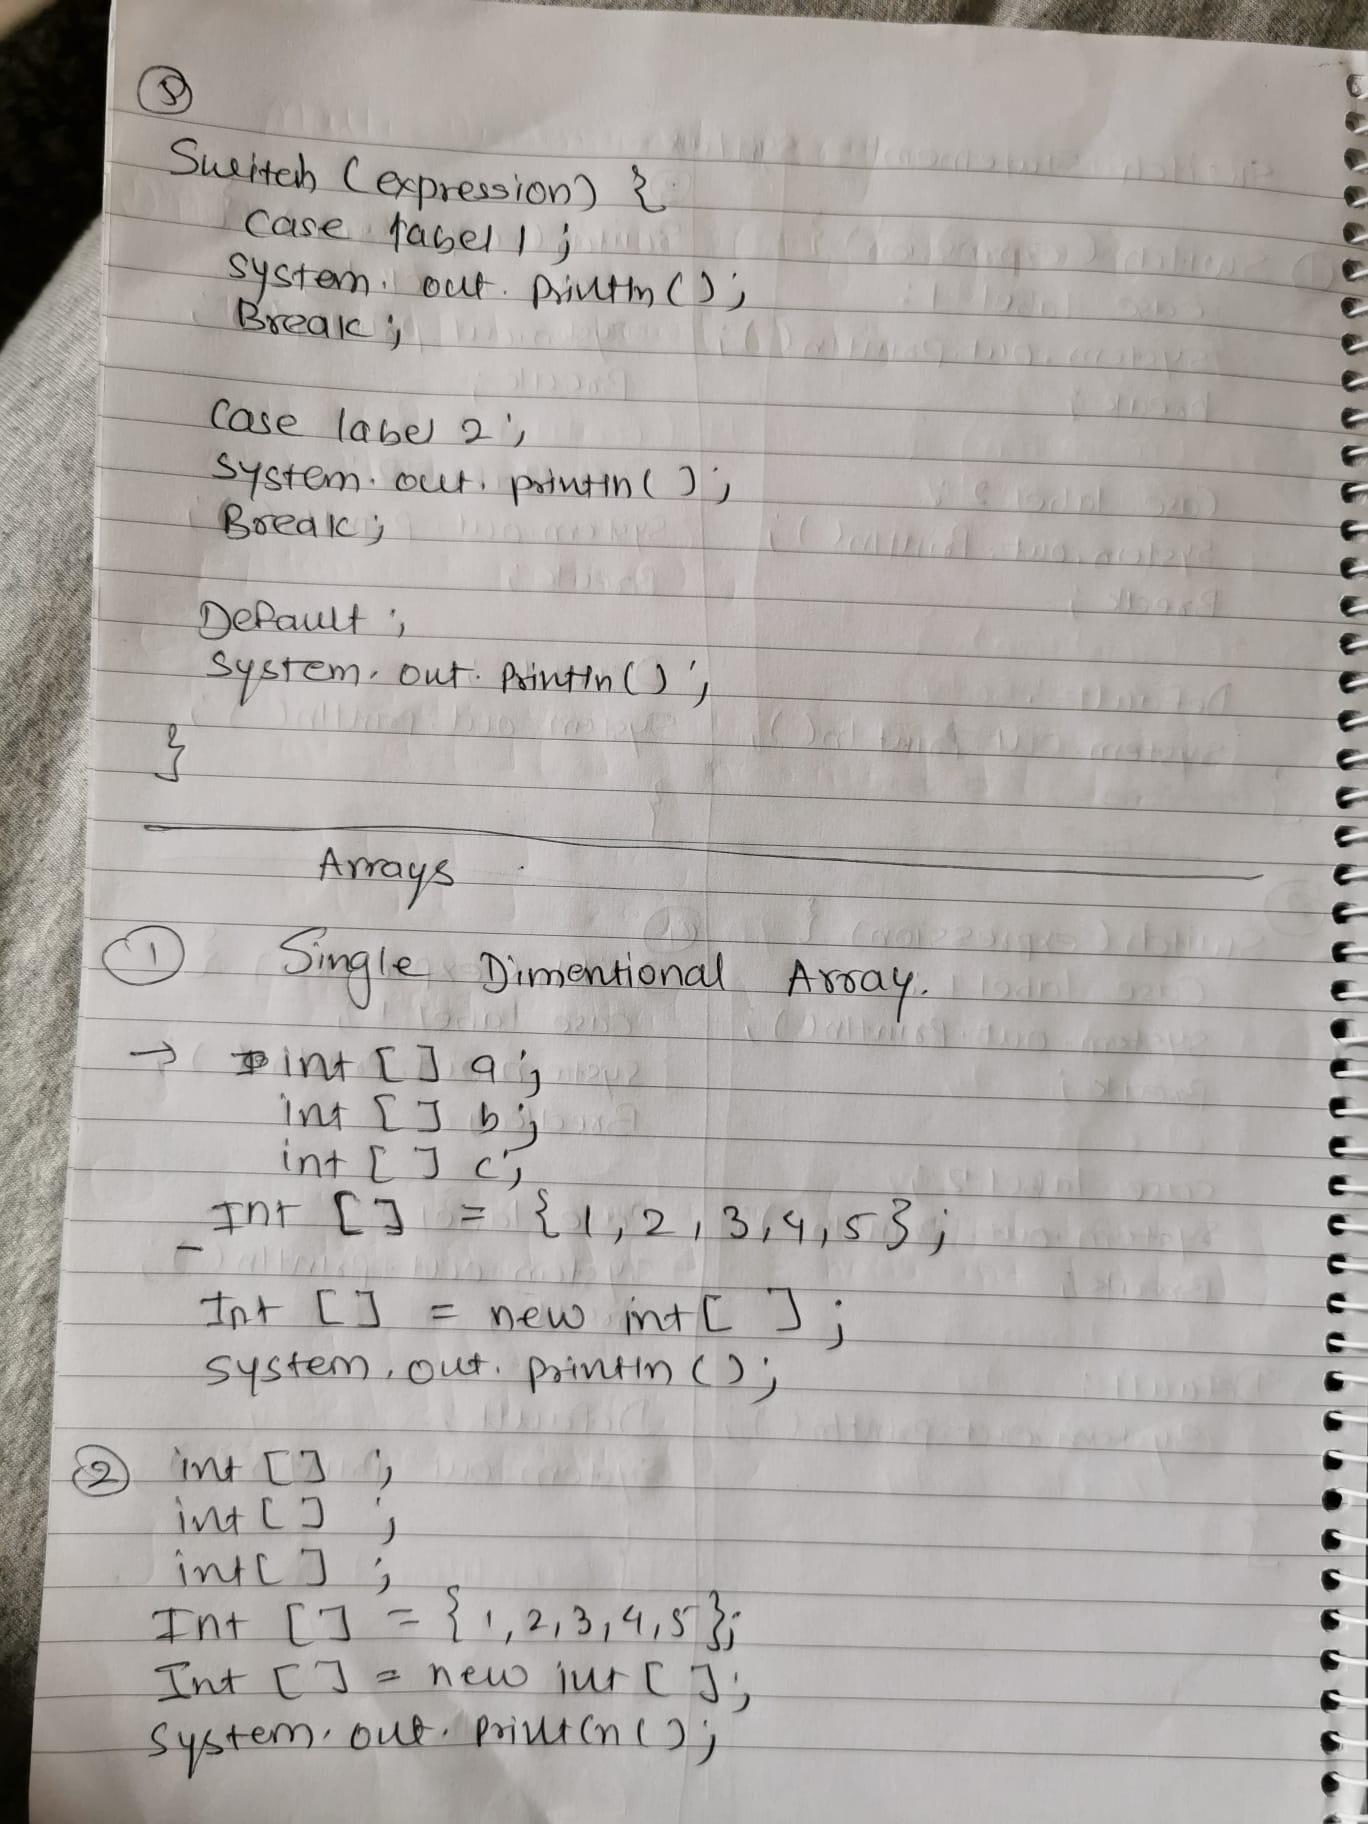 5
Switch (expression) {
case label 1 ;
system. out. println ( ) ;
Break ;
Case label 2 ;
system. out. println ( ) ;
Break ;
Default ;
system. out. println ( ) ;
}
Arrays
1 Single Dimentional Array.
→ int [ ] a ;
int [ ] b ;
int [ ] c ;
Int [ ] = { 1, 2, 3, 4, 5 } ;
Int [ ] = new int [ ] ;
system. out. println ( ) ;
2 int [ ] ;
int [ ] ;
int [ ] ;
Int [ ] = { 1, 2, 3, 4, 5 } ;
Int [ ] = new int [ ] ;
system. out. println ( ) ;